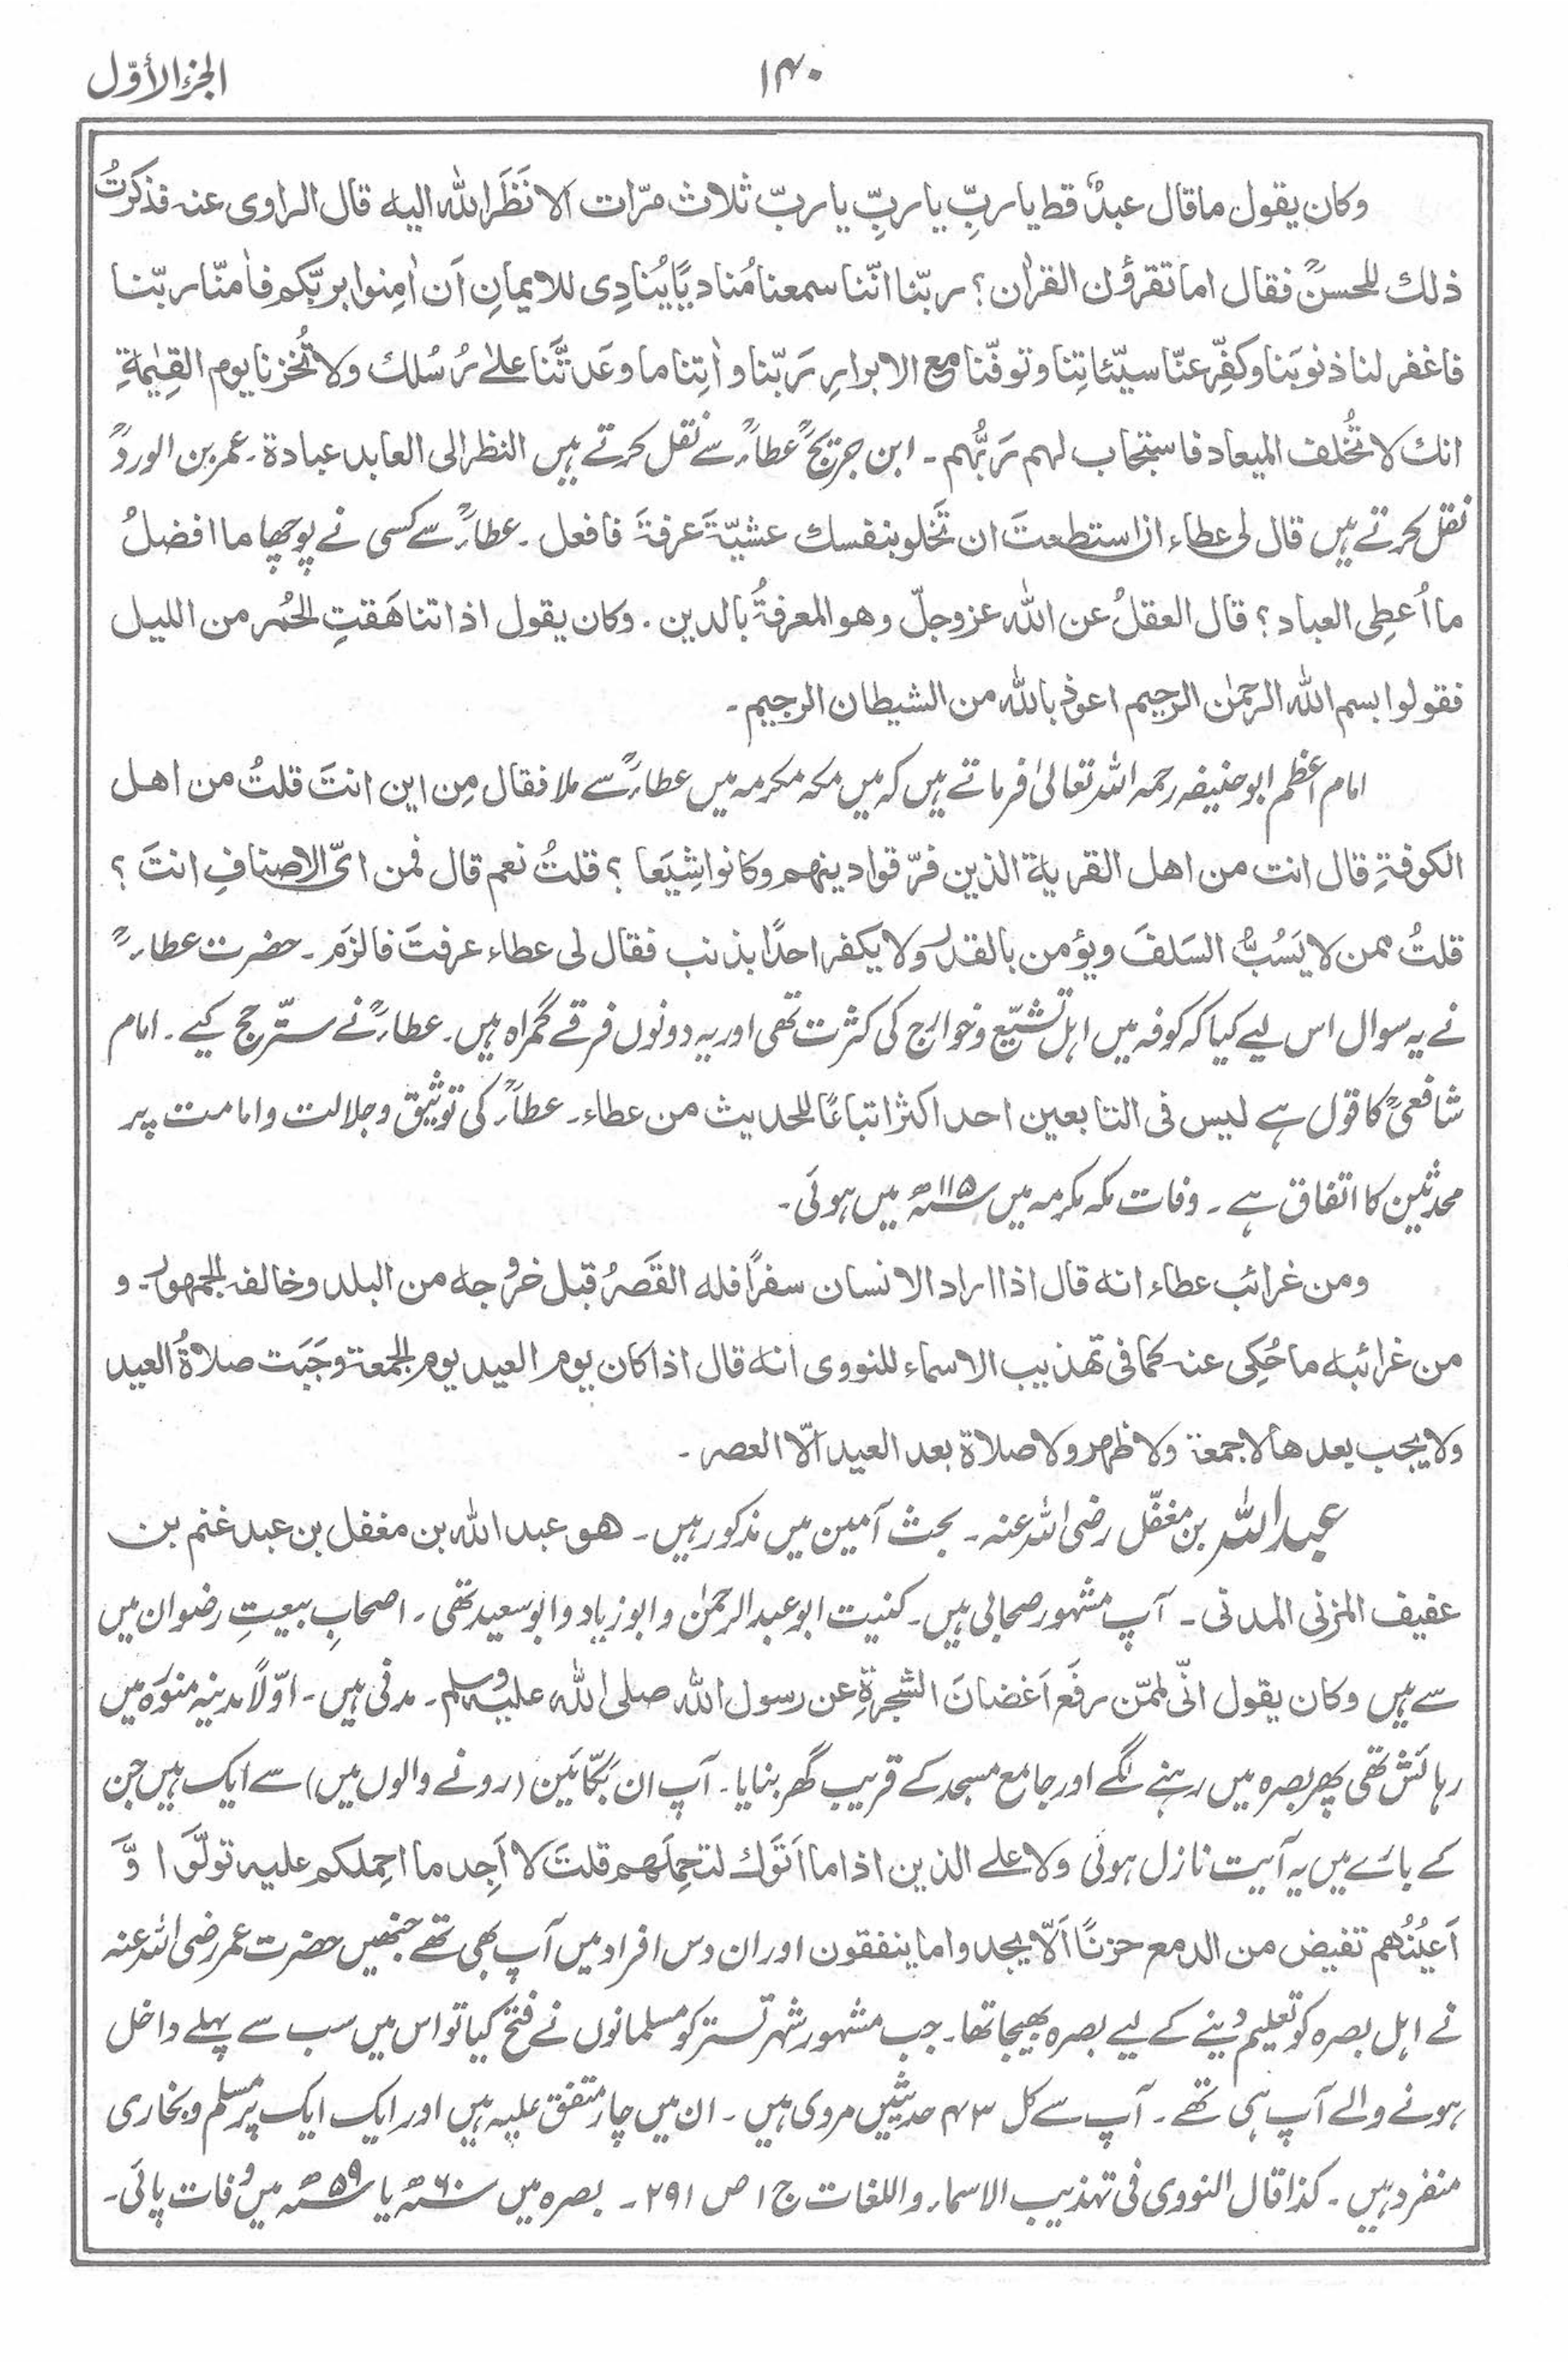 الجزء الأوّل
۱۴۰
وکان یقول ماقال عبدٌ قط یا ربِّ یا ربِّ یا ربّ ثلاث مرّات الا نَظَرَ اللّٰه الیه قال الراوی عنه فذکرتُ
ذلك للحسنؒ فقال اما تقرؤن القراٰن ؟ ربّنا انّنا سمعنا مُنادیًا یُنادِی للایمانِ اَن اٰمِنوا بربّکم فاٰمنّا ربّنا
فاغفر لنا ذنوبَنا وکفِّر عنّا سیّئاتِنا وتوفّنا مع الابرارِ رَبّنا واٰتِنا ما وعَدتَّنا علٰے رُسُلك ولا تُخزنا یوم القِیٰمةِ
انك لا تُخلف المیعاد فاستجاب لهم رَبُّهم ۔ ابن جریجؒ عطاءؒ سے نقل کرتے ہیں النظر الی العابد عبادة ۔ عمر بن الوردؒ
نقل کرتے ہیں قال لی عطاء ان استطعتَ ان تَخلو بنفسك عشیّةَ عرفةَ فافعل ۔ عطاءؒ سے کسی نے پوچھا ما افضلُ
ما اُعطِی العباد ؟ قال العقلُ عن اللّٰه عزوجلّ وهو المعرفةُ بالدین ۔ وکان یقول اذا تناهَقتِ الحُمر من اللیل
فقولوا بسم اللّٰه الرحمٰن الرحیم اعوذ باللّٰه من الشیطان الرجیم ۔
امام اعظم ابو حنیفہ رحمہ اللہ تعالیٰ فرماتے ہیں کہ میں مکہ مکرمہ میں عطاءؒ سے ملا فقال مِن این انتَ قلتُ من اهل
الکوفةِ قال انت من اهل القریة الذین فرّقوا دینهم وکانوا شِیَعا ؟ قلتُ نعم قال فمن ایّ الاصنافِ انتَ ؟
قلتُ ممن لا یَسُبُّ السَلفَ ویؤمن بالقدر ولا یکفر احدًا بذنب فقال لی عطاء عرفتَ فالزَم ۔ حضرت عطاءؒ
نے یہ سوال اس لیے کیا کہ کوفہ میں اہل تشیّع و خوارج کی کثرت تھی اور یہ دونوں فرقے گمراہ ہیں ۔ عطاءؒ نے ستّر حج کیے ۔ امام
شافعیؒ کا قول ہے لیس فی التابعین احد اکثر اتباعًا للحدیث من عطاء ۔ عطاءؒ کی توثیق و جلالت و امامت پر
محدثین کا اتفاق ہے ۔ وفات مکہ مکرمہ میں ۱۱۵ھ میں ہوئی ۔
ومن غرائب عطاء انه قال اذا اراد الانسان سفرًا فله القَصرُ قبل خروجه من البلد وخالفه الجمهور ۔ و
من غرائبه ما حُکِی عنه کما فی تهذیب الاسماء للنووی انه قال اذا کان یوم العید یوم الجمعة وجَبَت صلاةُ العید
ولا یجب بعدها لا جمعة ولا ظهر ولا صلاة بعد العید الّا العصر ۔
عبد اللہ بن مغفّل رضی اللہ عنہ ۔ بحث آمین میں مذکور ہیں ۔ هو عبد اللّٰه بن مغفل بن عبد غنم بن
عفیف المزنی المدنی ۔ آپ مشہور صحابی ہیں ۔ کنیت ابو عبد الرحمٰن و ابو زیاد و ابو سعید تھی ۔ اصحابِ بیعتِ رضوان میں
سے ہیں وکان یقول انّی لممّن رفَع اَغصانَ الشجرةِ عن رسول اللّٰه صلی اللّٰه علیه وسلم ۔ مدنی ہیں ۔ اوّلاً مدینہ منوّرہ میں
رہائش تھی پھر بصرہ میں رہنے لگے اور جامع مسجد کے قریب گھر بنایا ۔ آپ ان بکّائین (رونے والوں میں) سے ایک ہیں جن
کے بارے میں یہ آیت نازل ہوئی ولا علے الذین اذا ما اَتَوك لتحمِلَهم قلتَ لا اَجِد ما احمِلکم علیه تولَّوا وَّ
اَعیُنُهم تفیض من الدمع حزنًا اَلّا یجدوا ما ینفقون اور ان دس افراد میں آپ بھی تھے جنھیں حضرت عمر رضی اللہ عنہ
نے اہل بصرہ کو تعلیم دینے کے لیے بصرہ بھیجا تھا ۔ جب مشہور شہر تستر کو مسلمانوں نے فتح کیا تو اس میں سب سے پہلے داخل
ہونے والے آپ ہی تھے ۔ آپ سے کل ۴۳ حدیثیں مروی ہیں ۔ ان میں چار متفق علیہ ہیں اور ایک ایک پر مسلم و بخاری
منفرد ہیں ۔ کذا قال النووی فی تہذیب الاسماء واللغات ج ۱ ص ۲۹۱ ۔ بصرہ میں ۶۰ھ یا ۵۹ھ میں وفات پائی ۔